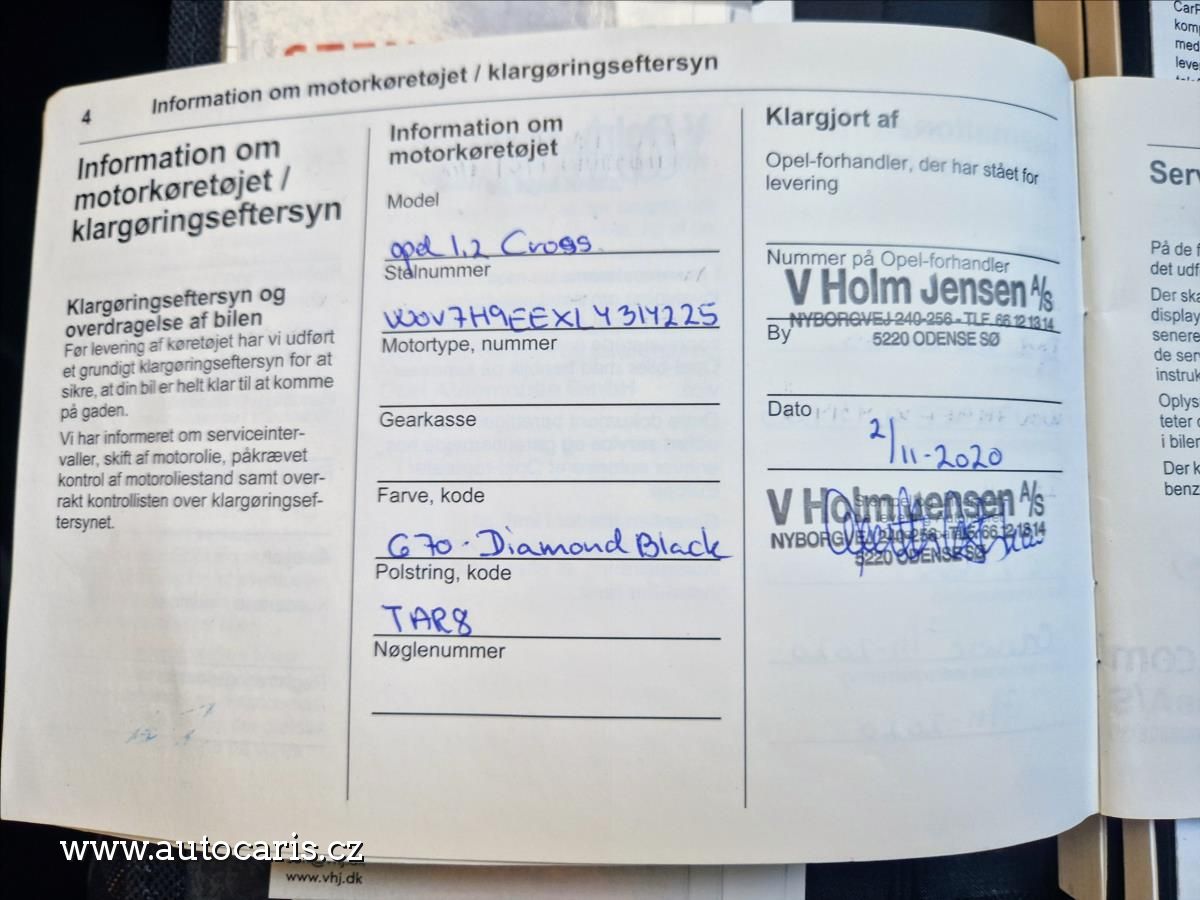 4
Information om motorkøretøjet / klargøringseftersyn
Information om
motorkøretøjet /
klargøringseftersyn
Klargøringseftersyn og
overdragelse af bilen
Før levering af køretøjet har vi udført
et grundigt klargøringseftersyn for at
sikre, at din bil er helt klar til at komme
på gaden.
Vi har informeret om serviceinter-
valler, skift af motorolie, påkrævet
kontrol af motoroliestand samt over-
rakt kontrollisten over klargøringsef-
tersynet.
Information om
motorkøretøjet
Model
opel 1,2 Cross
Stelnummer
W0V7H9EEXL4314225
Motortype, nummer
Gearkasse
Farve, kode
G70 - Diamond Black
Polstring, kode
TAR8
Nøglenummer
Klargjort af
Opel-forhandler, der har stået for
levering
Nummer på Opel-forhandler
V Holm Jensen A/S
NYBORGVEJ 240-256 - TLF. 66 12 13 14
5220 ODENSE SØ
By
Dato
2/11-2020
V Holm Jensen A/S
NYBORGVEJ 240-256 - TLF. 66 12 13 14
5220 ODENSE SØ
Serv
På de f
det udf
Der ska
display
senere
de ser
instruk
Oplys
teter
i biler
Der k
benz
CarF
kom
med
leve
www.autocaris.cz
www.vhj.dk